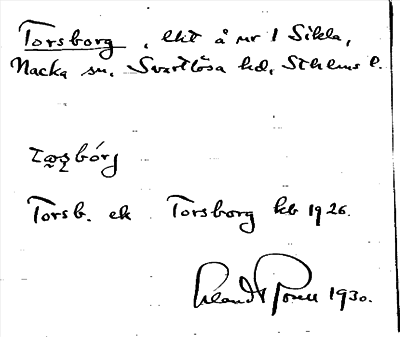 Torsborg, lht å nr 1 Sikla,
Nacka sn, Svartlösa hd, Sthlms l.
Torsb. ek Torsborg kb 1926.
1930.